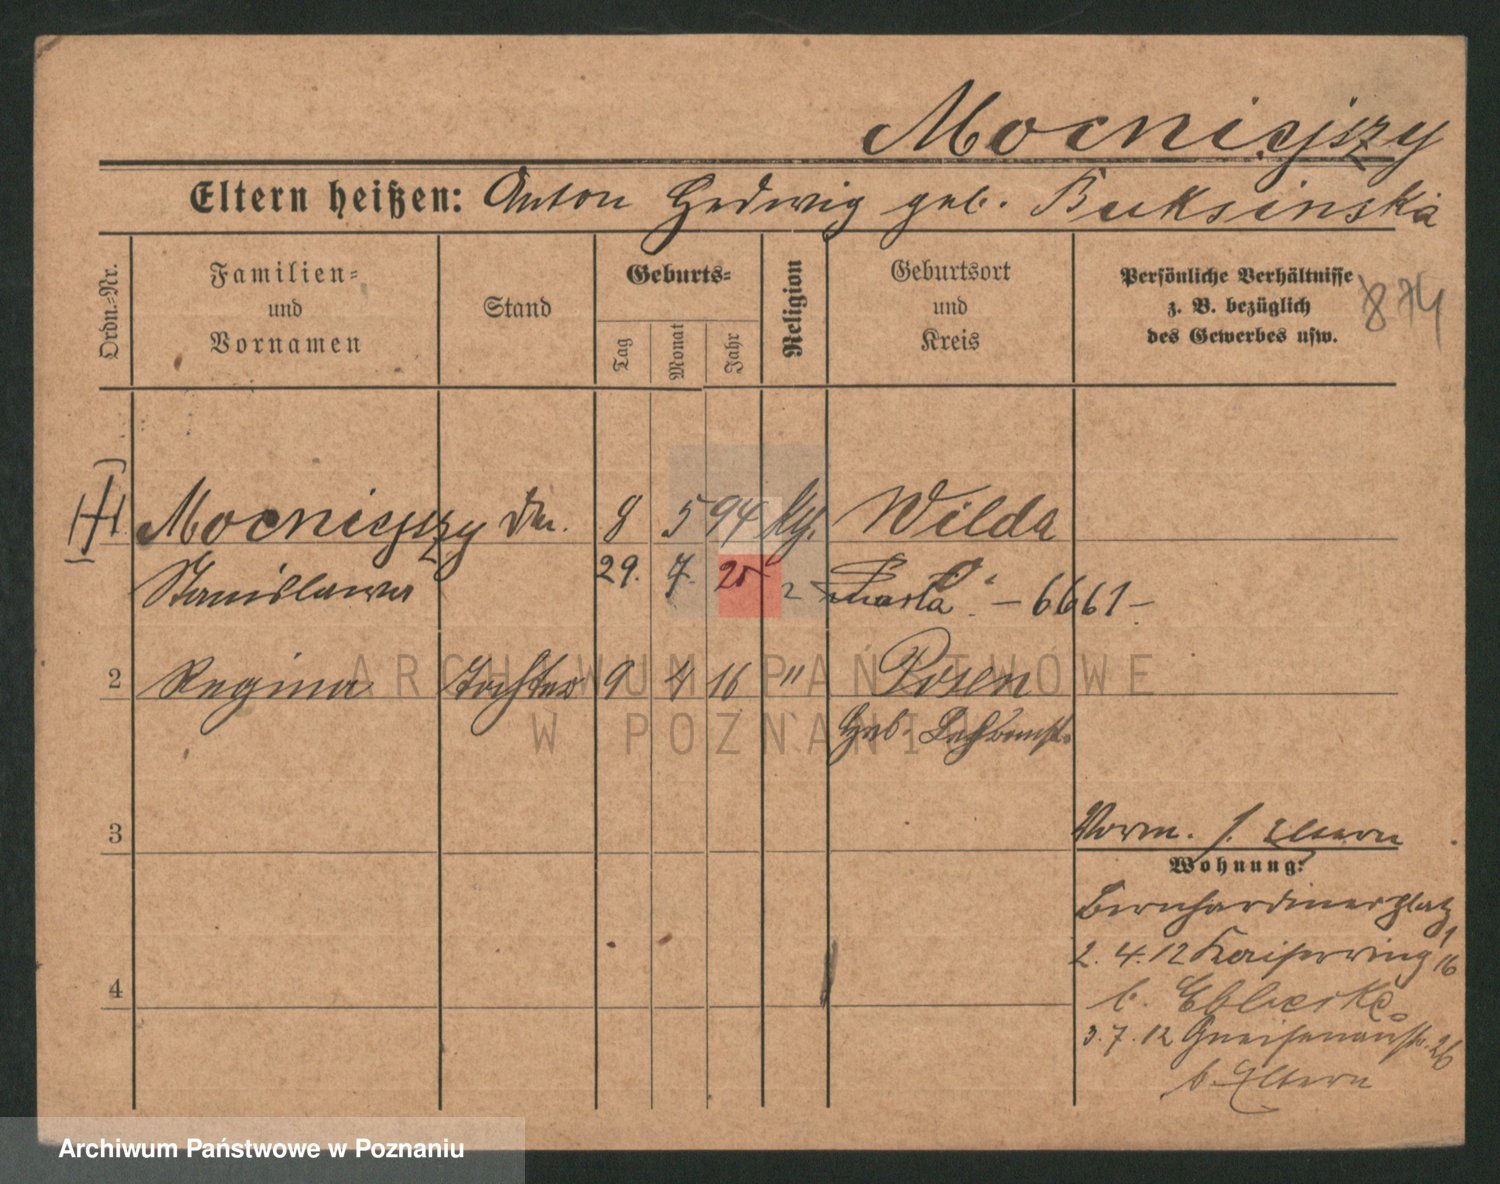 Mocniejszy
Eltern heißen: Anton Hedwig geb. Buksinska
Ordn.=Nr.
Familien=
und
Vornamen
Stand
Geburts=
Tag
Monat
Jahr
Religion
Geburtsort
und
Kreis
Persönliche Verhältnisse
z. B. bezüglich
des Gewerbes usw.
874
Mocniejszy 8 5 94 Wilda
Stanislawa 29. 7. 25 - 6661 -
2 Regina Tochter 9 4 16 " Posen
Geb.
3
Vorm. s. Eltern
Wohnung:
Bernhardinerplatz 1
2. 4. 12 Kaiserring 16
b.
4
3. 7. 12 Gneisenaustr. 26
b. Eltern
ARCHIWUM PAŃSTWOWE
W POZNANIU
Archiwum Państwowe w Poznaniu